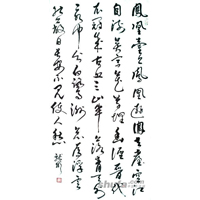 鳳凰臺上鳳凰遊鳳去臺空江
自流吳宮花草埋幽徑晉代
衣冠成古丘三山半落青天外
二水中分白鷺洲總為浮雲
能蔽日長安不見使人愁